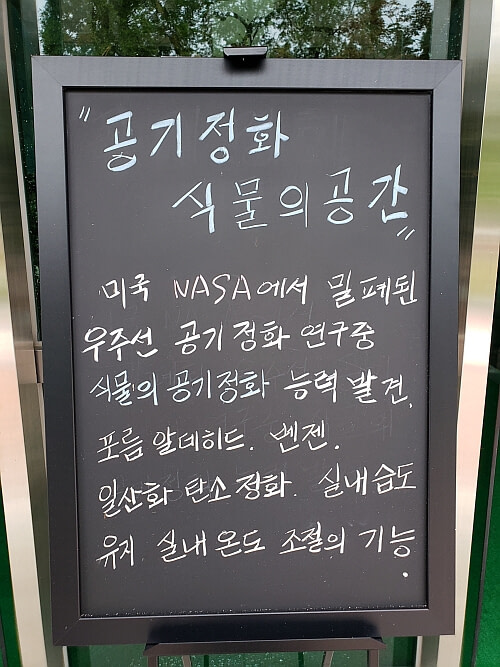 "공기정화
식물의공간"
미국 NASA에서 밀폐된
우주선 공기정화 연구중
식물의 공기정화 능력 발견.
포름알데히드. 벤젠.
일산화 탄소정화. 실내습도
유지 실내온도 조절의 기능.